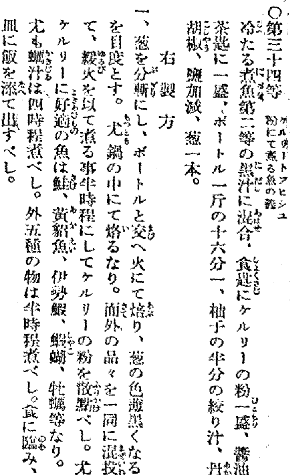 ○第三十四等 ケルリードフヒシユ 粉にて煮る魚の羹
冷たる煮魚第二等の羹汁に混合、食匙にケルリーの粉一盛、醬油
茶匙に一盛、ボートル一斤の十六分一、柚子の半分の絞り汁、丹
胡椒、鹽加減、葱一本。
右製方
一、葱を分斬にし、ボートルと交へ火にて焙り、葱の色薄黑くなる
を目度とす。尤鍋の中にて焙るなり。而外の品々を一同に混投
て、緩火を以て煮る事半時程にしてケルリーの粉を散點べし。尤
ケルリーに好適の魚は鮭、黃貂魚、伊勢鰕、鰕、牡蠣等なり。
尤も蠣汁は四時程煮べし。外五種の物は半時程煮べし。食に臨み、
皿に飯を添て出すべし。